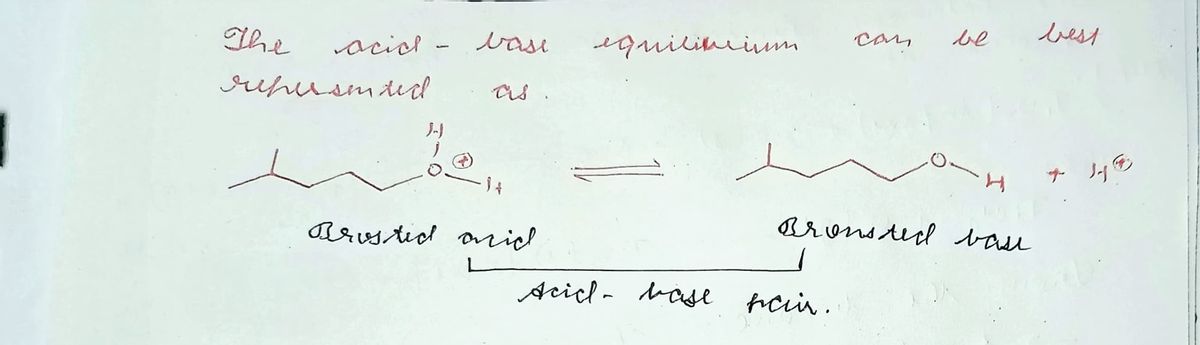 The acid - base equilibrium can be best
represented as .
H
O ⊕ H ⇌ O H + H⊕
Brosted acid Bronsted base
Acid - base pair.